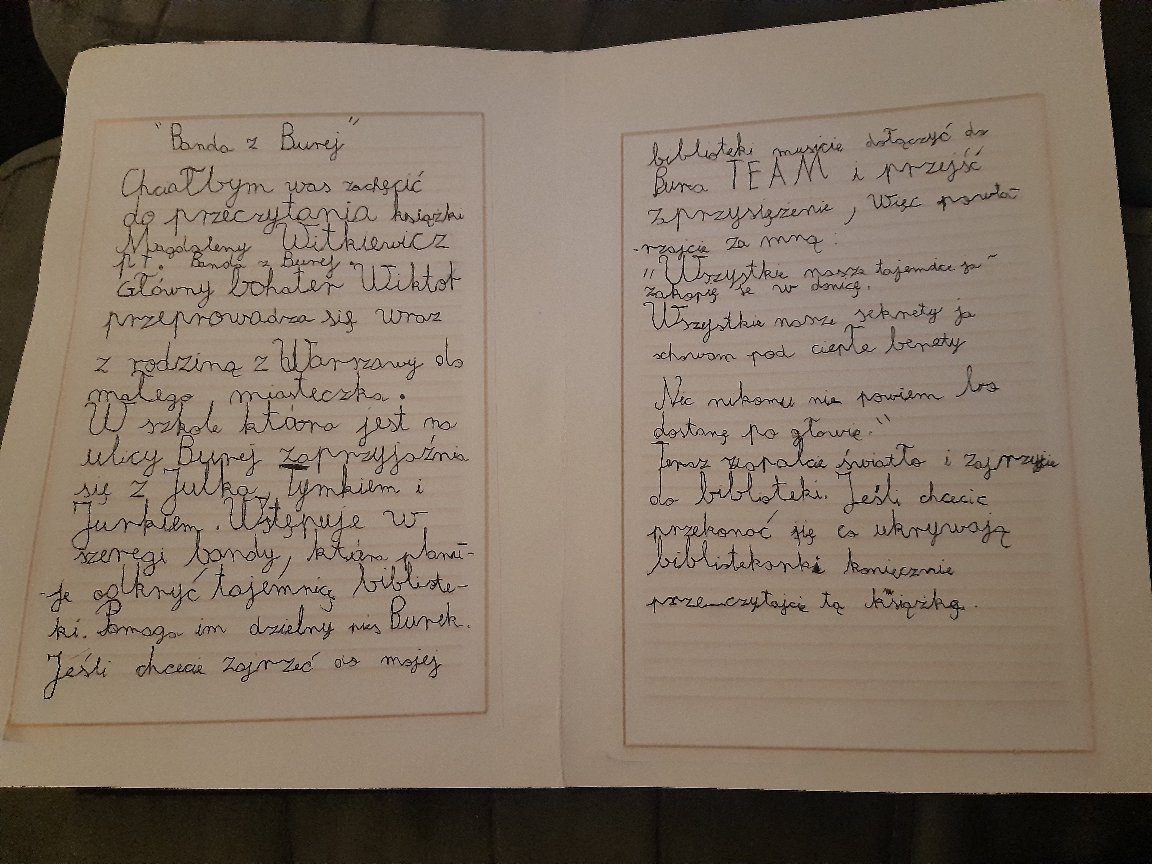 "Banda z Burej"
Chciałbym was zachęcić
do przeczytania książki
Magdaleny Witkiewicz
pt. Banda z Burej.
Główny bohater Wiktor
przeprowadza się wraz
z rodziną z Warszawy do
małego miasteczka.
W szkole która jest na
ulicy Burej zaprzyjaźnia
się z Julką, Tymkiem i
Jurkiem. Wstępuje w
szeregi bandy, która planu-
-je odkryć tajemnicę bibliote-
ki. Pomaga im dzielny pies Burek.
Jeśli chcecie zajrzeć do mojej
biblioteki musicie dołączyć do
Bura TEAM i przejść
zaprzysiężenie, Więc powta-
-rzajcie za mną:
"Wszystkie nasze tajemnice ja
zakopię je w donicę.
Wszystkie nasze sekrety ja
schowam pod ciepłe berety
Nic nikomu nie powiem bo
dostanę po głowie."
Teraz zapalcie światło i zajrzyjcie
do biblioteki. Jeśli chcecie
przekonać się co ukrywają
bibliotekarki koniecznie
przeczytajcie tą książkę.